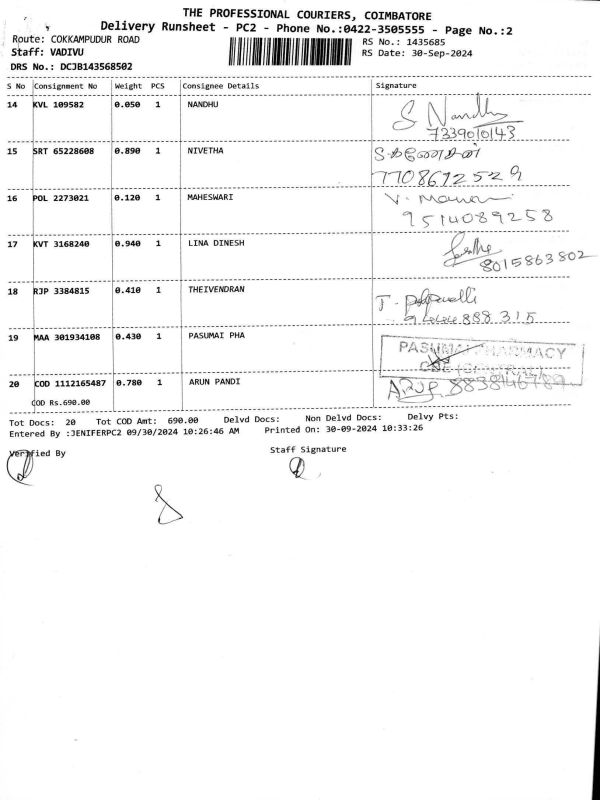 THE PROFESSIONAL COURIERS, COIMBATORE
Delivery Runsheet - PC2 - Phone No.:0422-3505555 - Page No.:2
Route: COKKAMPUDUR ROAD RS No.: 1435685
Staff: VADIVU RS Date: 30-Sep-2024
DRS No.: DCJB143568502
S No Consignment No Weight PCS Consignee Details Signature
14 KVL 109582 0.050 1 NANDHU S Nandhu
7339010143
15 SRT 65228608 0.890 1 NIVETHA
7708672529
16 POL 2273021 0.120 1 MAHESWARI V.
9514089258
17 KVT 3168240 0.940 1 LINA DINESH
8015863802
18 RJP 3384815 0.410 1 THEIVENDRAN T.
888 315
19 MAA 301934108 0.430 1 PASUMAI PHA PASUMAI PHARMACY
20 COD 1112165487 0.780 1 ARUN PANDI
COD Rs.690.00
Tot Docs: 20 Tot COD Amt: 690.00 Delvd Docs: Non Delvd Docs: Delvy Pts:
Entered By :JENIFERPC2 09/30/2024 10:26:46 AM Printed On: 30-09-2024 10:33:26
Verified By Staff Signature